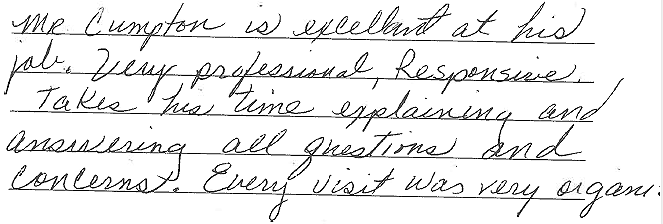 Mr Cumpton is excellant at his
job. Very professional, Responsive.
Takes his time explaining and
answering all questions and
concerns. Every visit was very organi.